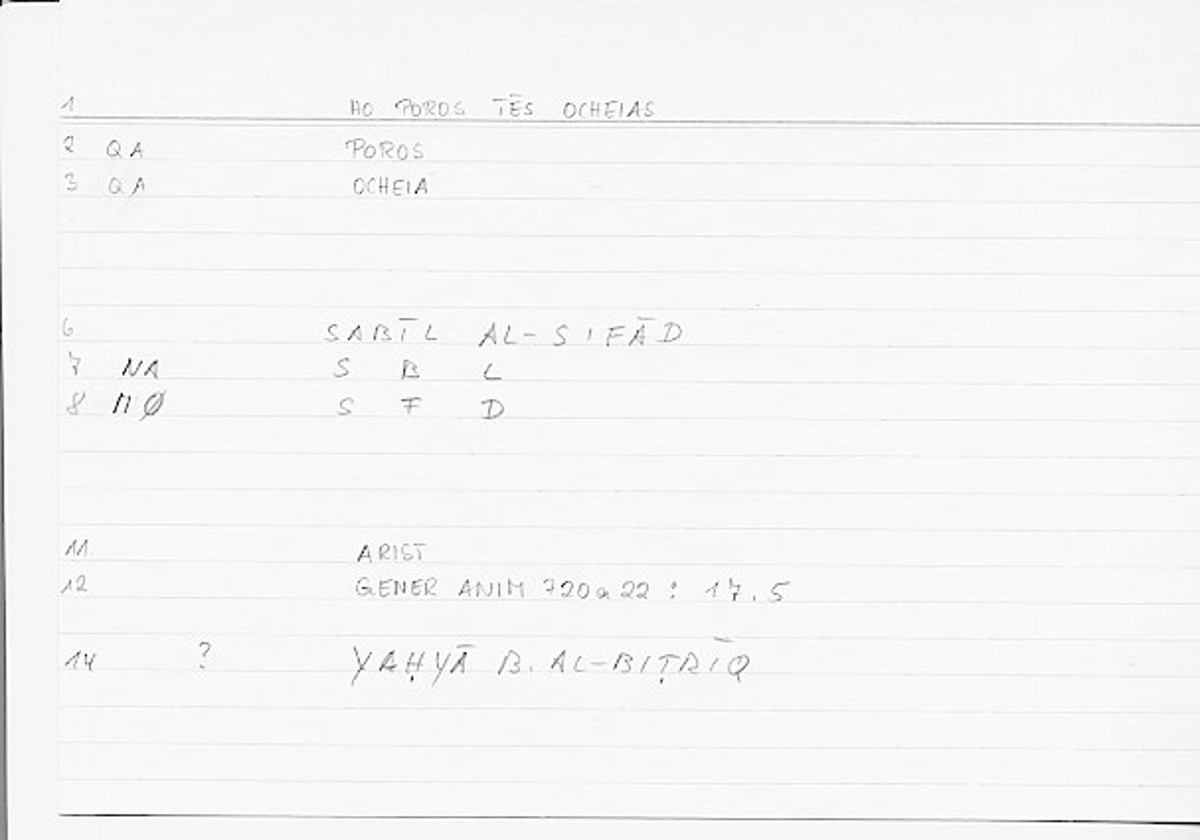 1 HO POROS TĒS OCHEIAS
2 QA POROS
3 QA OCHEIA
6 SABĪL AL-SIFĀD
7 NA S B L
8 MØ S F D
11 ARIST
12 GENER ANIM 720a22 : 17.5
14 ? YAḤYĀ B. AL-BIṬRĪQ